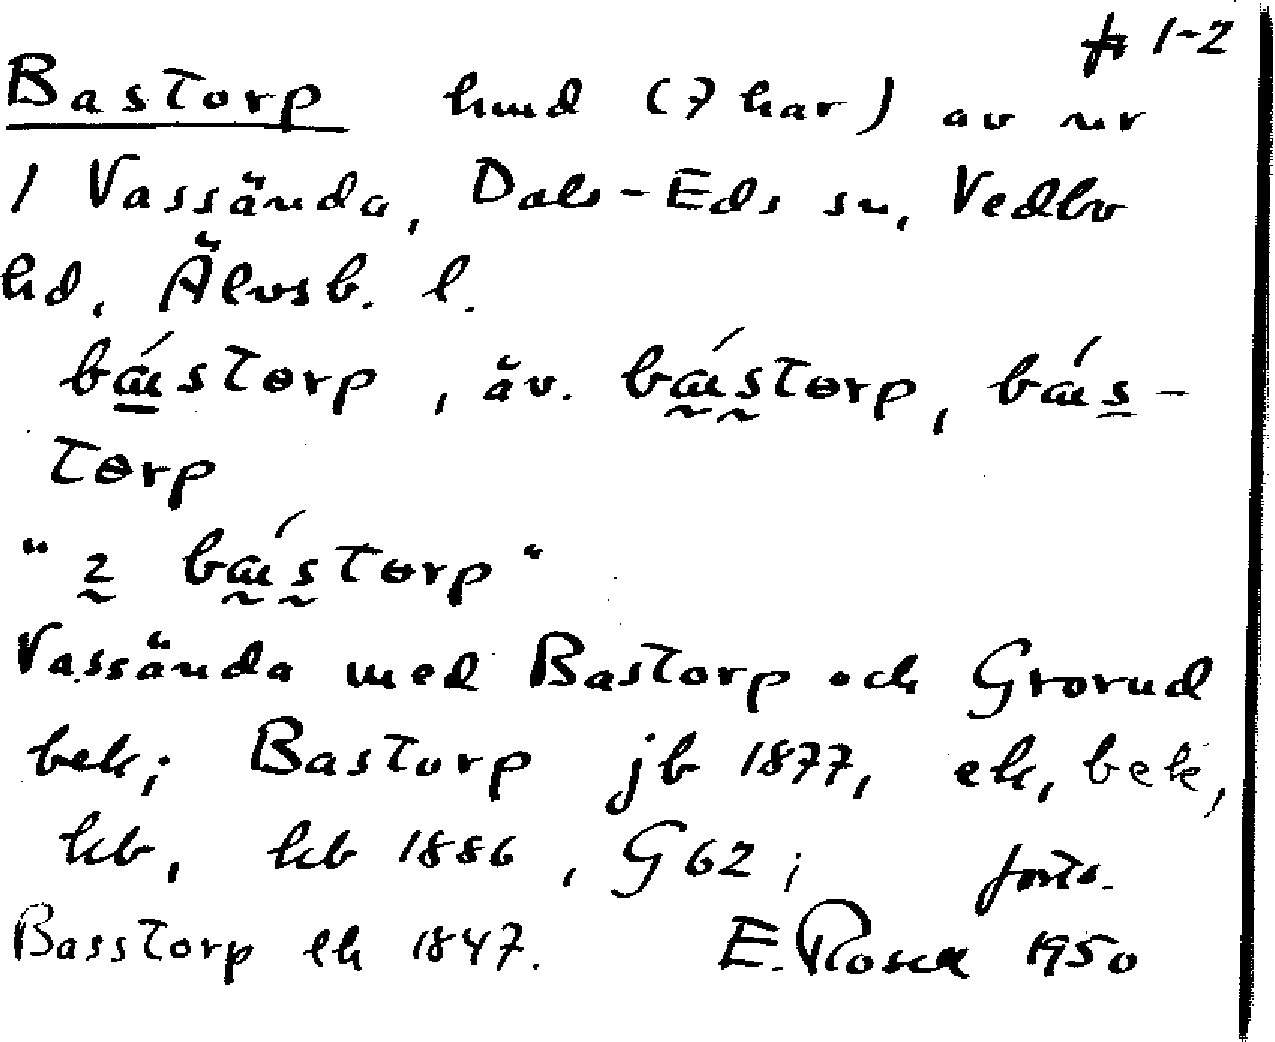 1-2
Bastorp hmd (7 har) av nr
1 Vassända, Dals-Eds sn, Vedbo
hd, Älvsb. l.
bástɵrp, äv. bástɵrp, bás-
tɵrp
"2 bástɵrp"
Vassända med Bastorp och Grorud
bek; Bastorp jb 1877, ek, bek,
kb, kb 1886, G62; forts.
Basstorp ek 1847. E. Rosell 1950